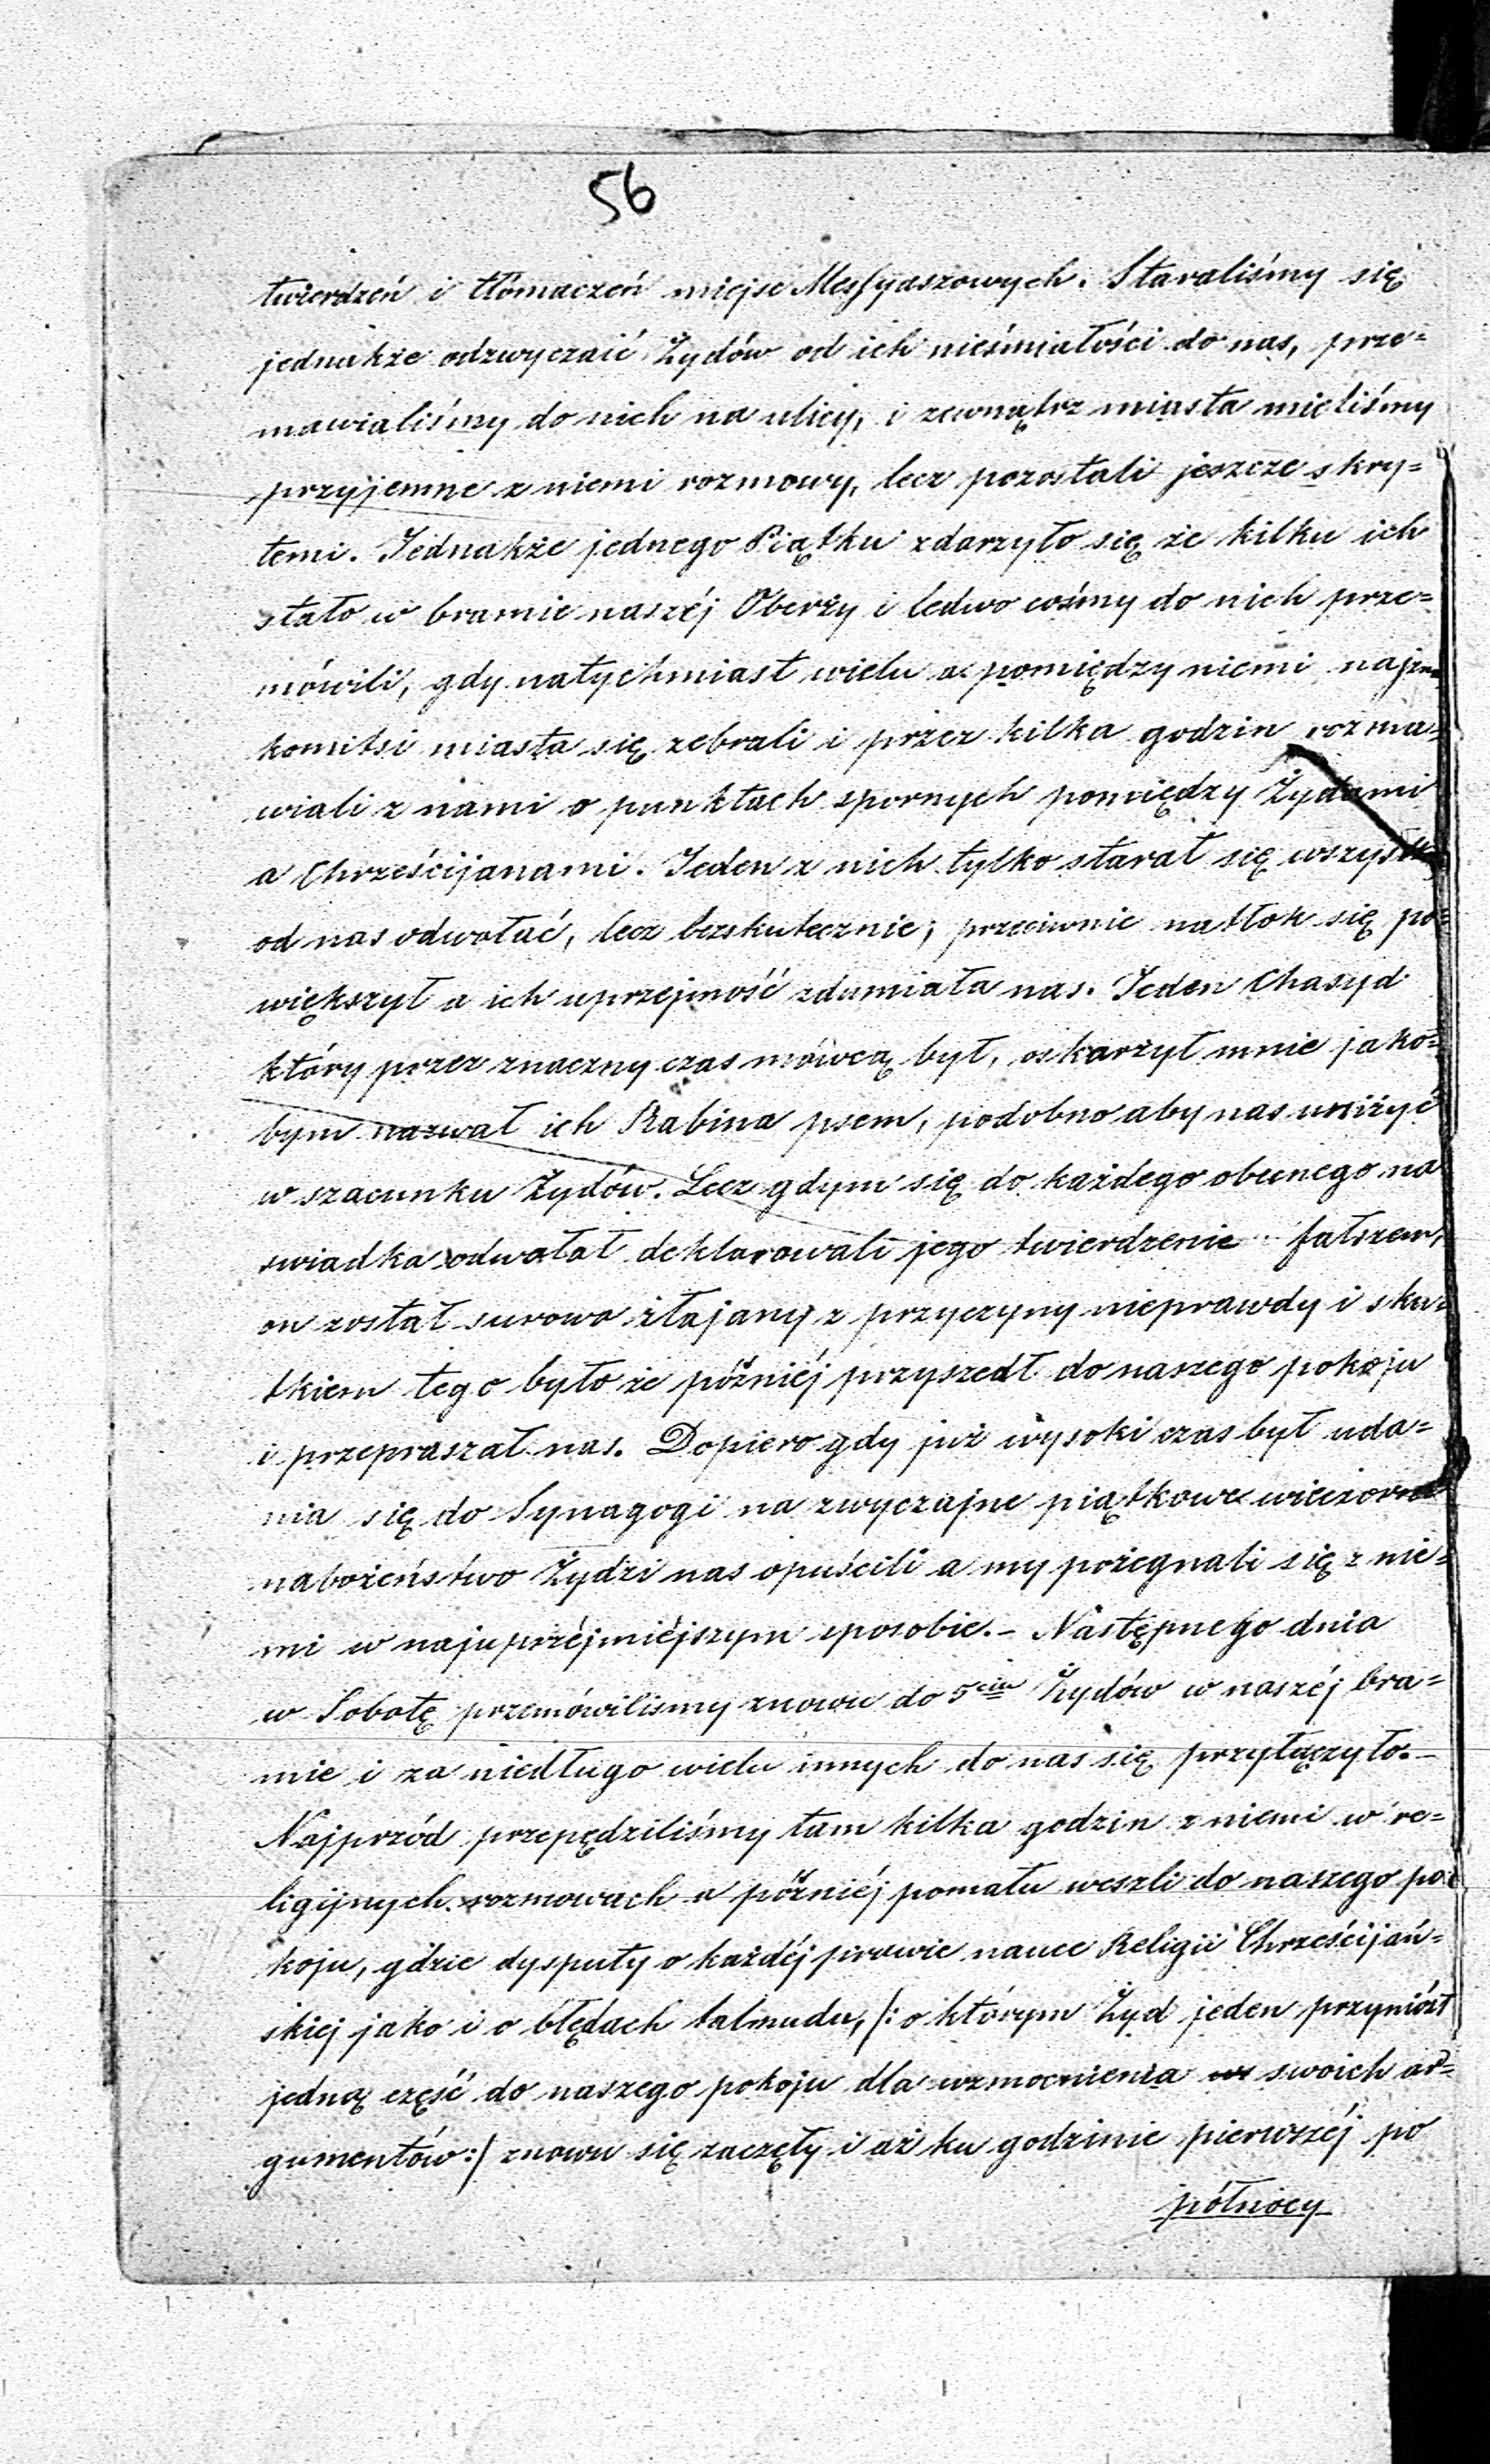 56
twierdzeń i tłómaczeń miejsc Messyaszowych. Staraliśmy się
jednakże odzwyczaić Żydów od ich nieśmiałości do nas, prze=
mawialiśmy do nich na ulicy, i zewnątrz miasta mieliśmy
przyjemne z niemi rozmowy, lecz pozostali jeszcze skry=
temi. Jednakże jednego Piątku zdarzyło się że kilku ich
stało w bramie naszéj Oberży i ledwo cośmy do nich prze=
mówili, gdy natychmiast wielu a pomiędzy niemi najzna
komitsi miasta się zebrali i przez kilka godzin rozma=
wiali z nami o punktach spornych pomiędzy Żydami
a Chrześcijanami. Jeden z nich tylko starał się wszystkich
od nas odwołać, lecz bezskutecznie; przeciwnie natłok się po=
większył a ich uprzejmość zdumiała nas. Jeden Chasyd
który przez znaczny czas mówcą był, oskarżył mnie jako=
bym nazwał ich Rabina psem, podobno aby nas uniżyć
w szacunku Żydów. Lecz gdym się do każdego obecnego na
swiadka odwołał deklarowali jego twierdzenie fałszem,
on został surowo złajany z przyczyny nieprawdy i sku=
tkiem tego było że późniéj przyszedł do naszego pokoju
i przepraszał nas. Dopiero gdy już wysoki czas był uda=
nia się do Synagogi na zwyczajne piątkowe wieczorne
nabożeństwo Żydzi nas opuścili a my pożegnali się z nie=
mi w najuprzéjmiéjszym sposobie. – Następnego dnia
w Sobotę przemówilismy znowu do 5ciu Żydów w naszéj bra=
mie i za niedługo wielu innych do nas się przyłączyło. –
Najprzód przepędziliśmy tam kilka godzin z niemi w re=
ligijnych rozmowach a późniéj pomału weszli do naszego po=
koju, gdzie dysputy o każdéj prawie nauce Religii Chrześcijań=
skiej jako i o błędach talmudu, /: o którym Żyd jeden przyniósł
jedną część do naszego pokoju dla wzmocnienia swoich ar=
gumentów :/ znowu się zaczęły i aż ku godzinie pierwszéj po
północy